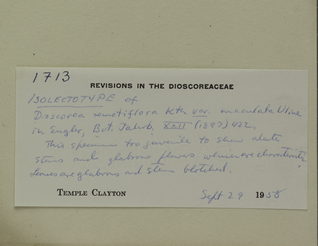 1713
REVISIONS IN THE DIOSCOREACEAE
ISOLECTOTYPE of
Dioscorea semitiflora Kth var. maculata Uline
in Engler, Bot. Jahrb. XXII (1897) 422.
This specimen too juvenile to show alate
stems and glabrous flowers which are characteristic
Leaves are glabrous and stem blotched.
TEMPLE CLAYTON
Sept 29 1958